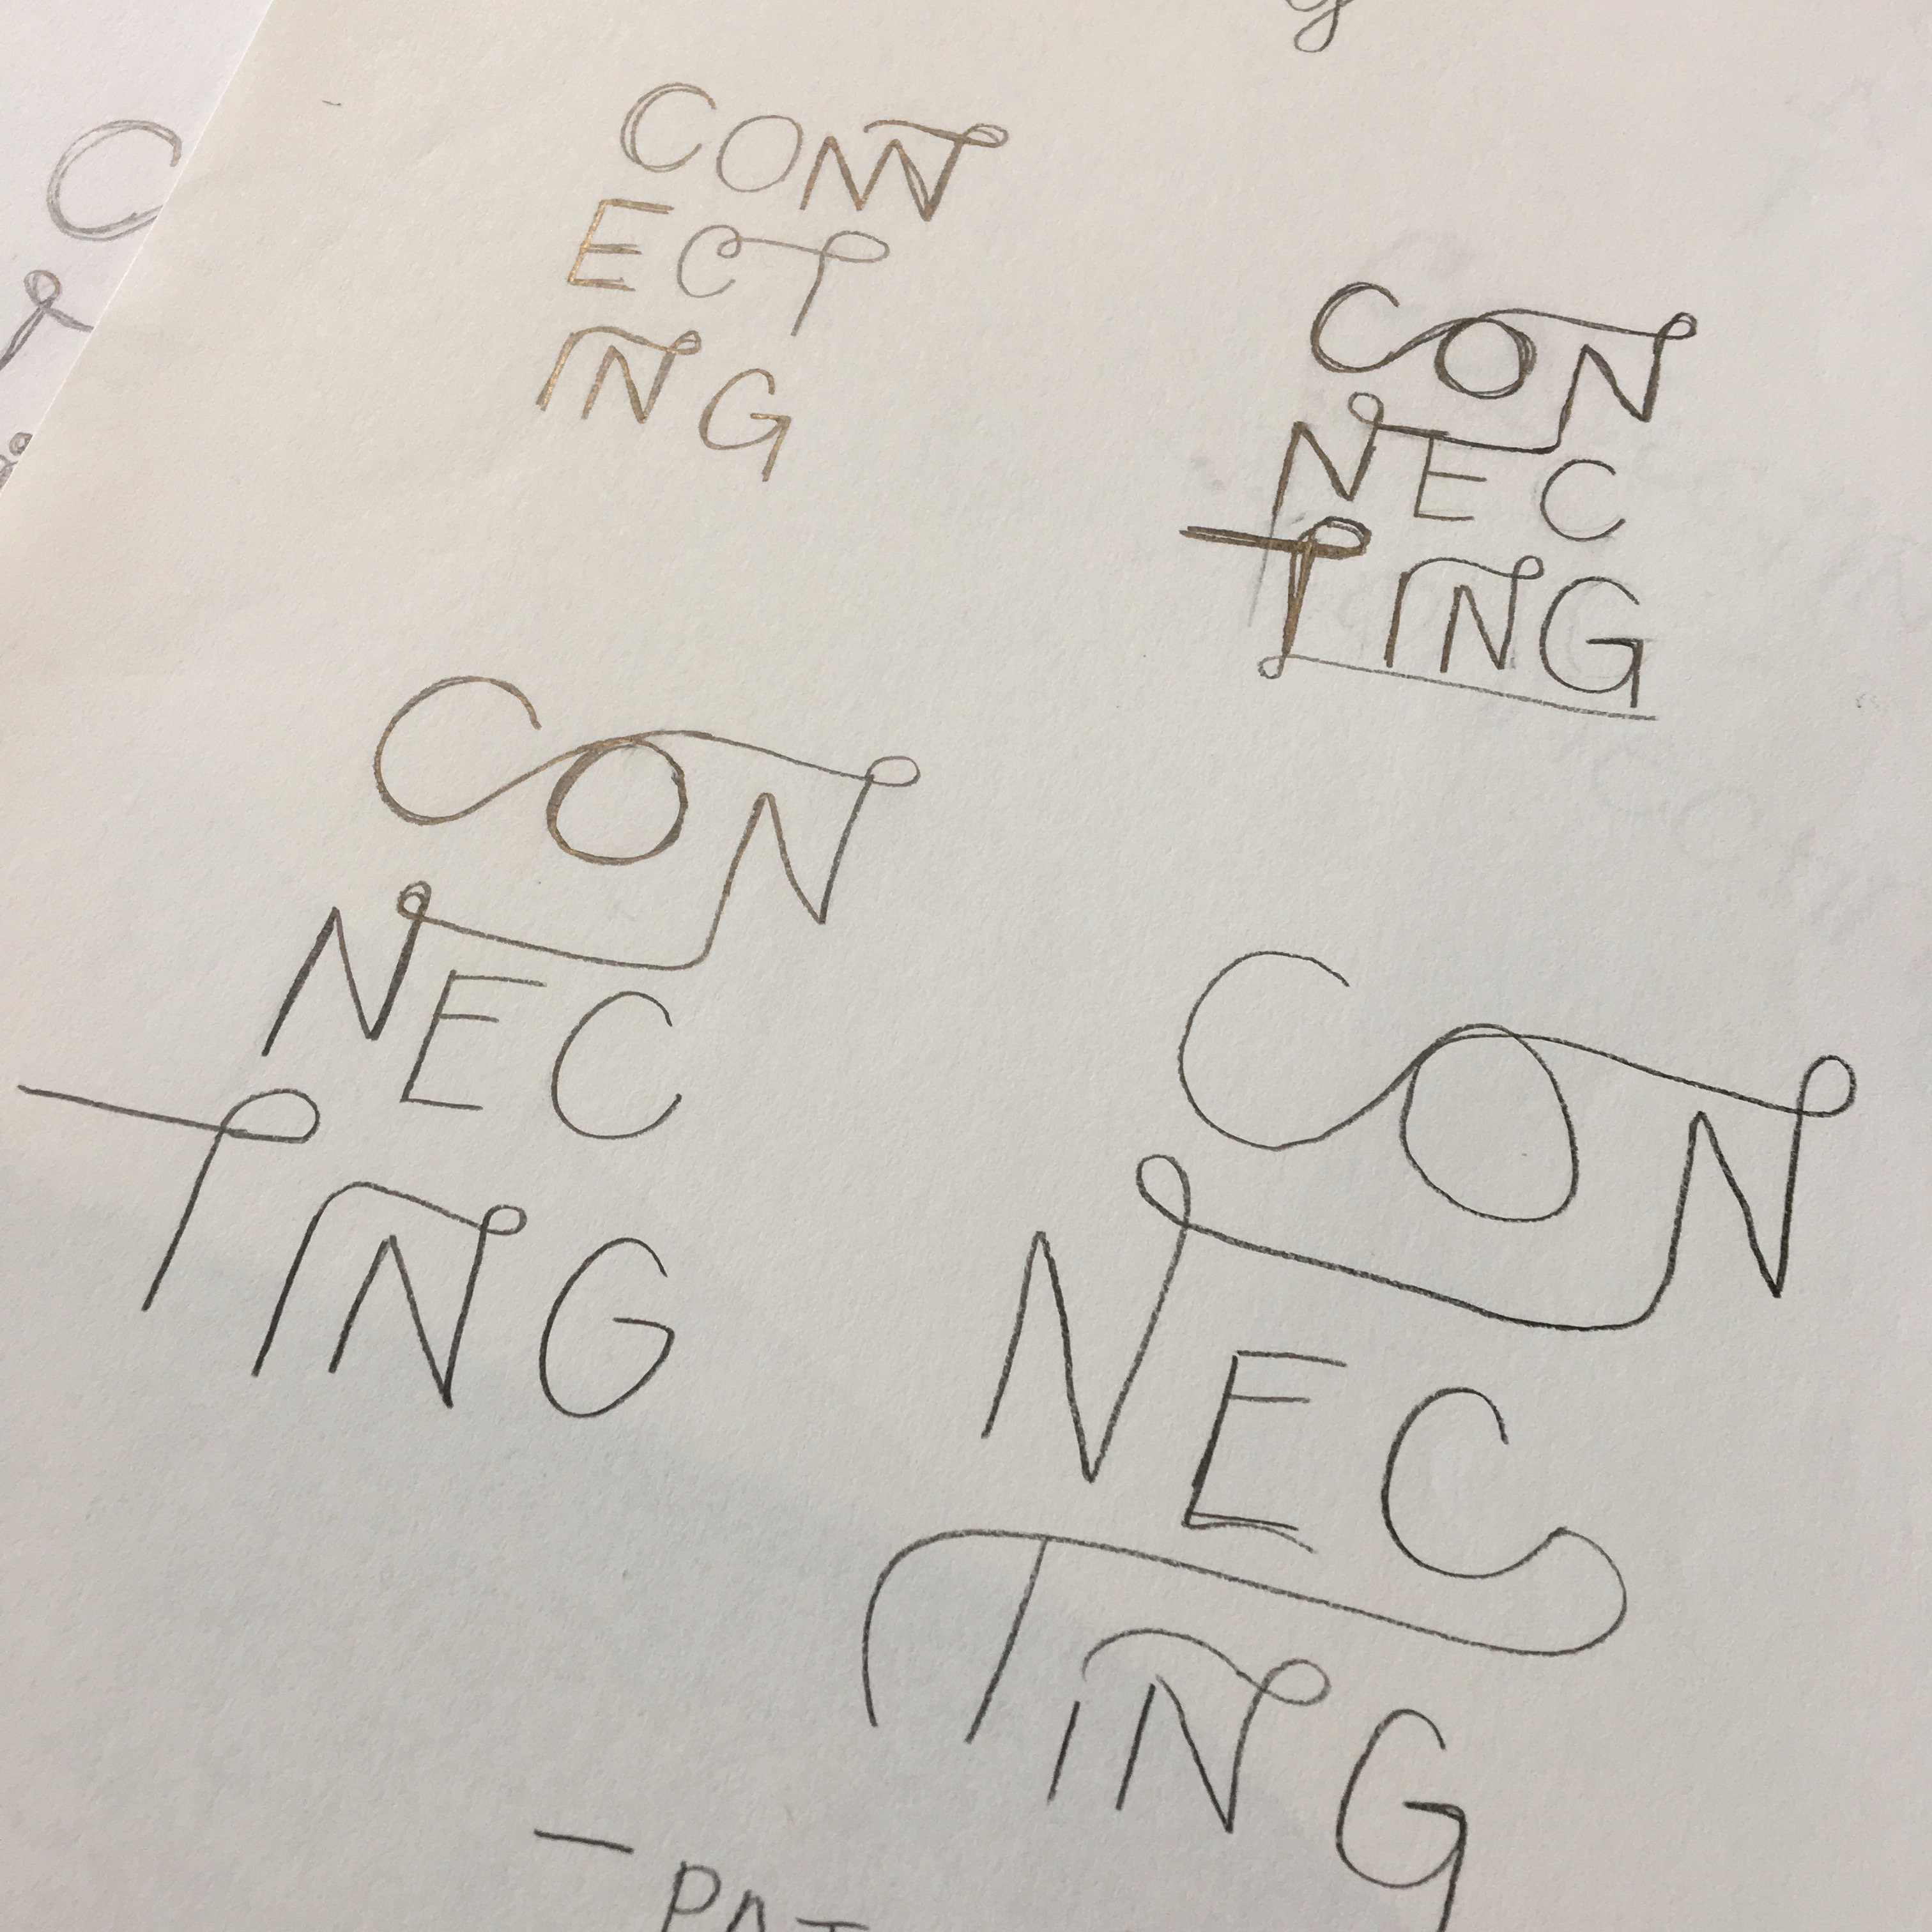 CONN
ECT
ING
CON
NEC
TING
CON
NEC
TING
CON
NEC
TING
C